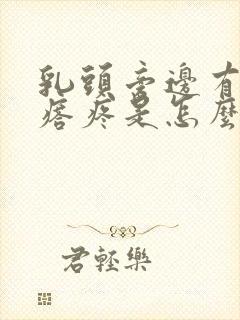 乳頭旁邊有
痞疼是怎麼
君輕樂